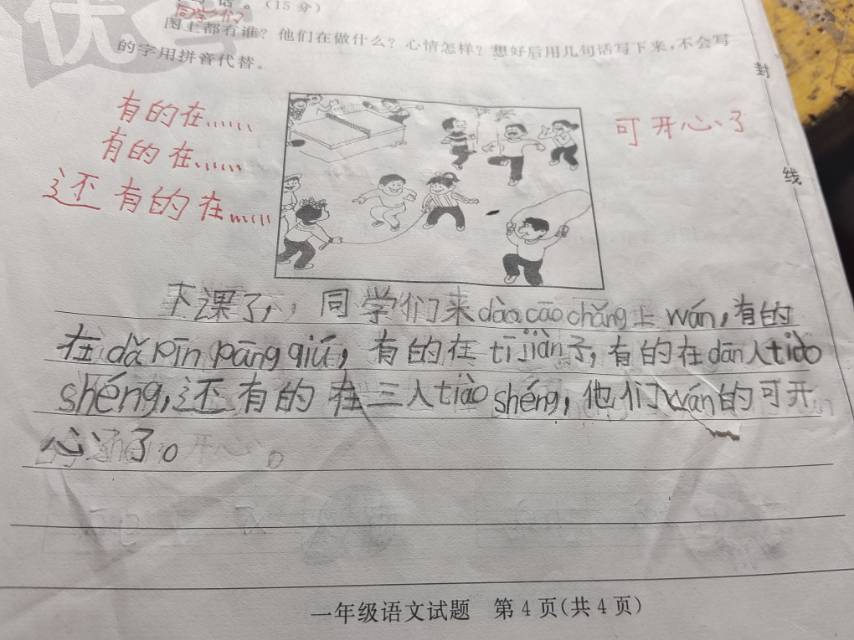 话。(15分)
同学们
图上都有谁?他们在做什么?心情怎样?想好后用几句话写下来,不会写
的字用拼音代替。
封
线
有的在……
有的在……
还有的在……
可开心了
下课了,同学们来dào cāo chǎng上wán,有的
在dǎ pīn pāng qiú,有的在tī jiàn子,有的在dān人tiào
shéng,还有的在三人tiào shéng,他们wán的可开
心了。
一年级语文试题 第4页(共4页)